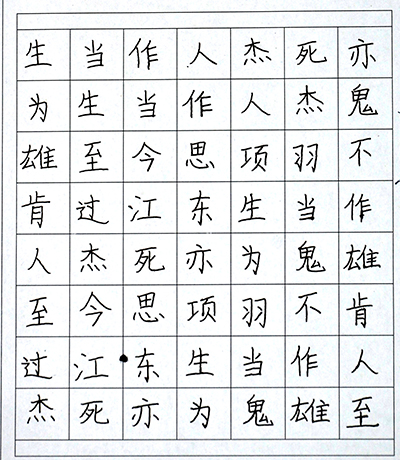 生当作人杰死亦
为生当作人杰鬼
雄至今思项羽不
肯过江东生当作
人杰死亦为鬼雄
至今思项羽不肯
过江东生当作人
杰死亦为鬼雄至